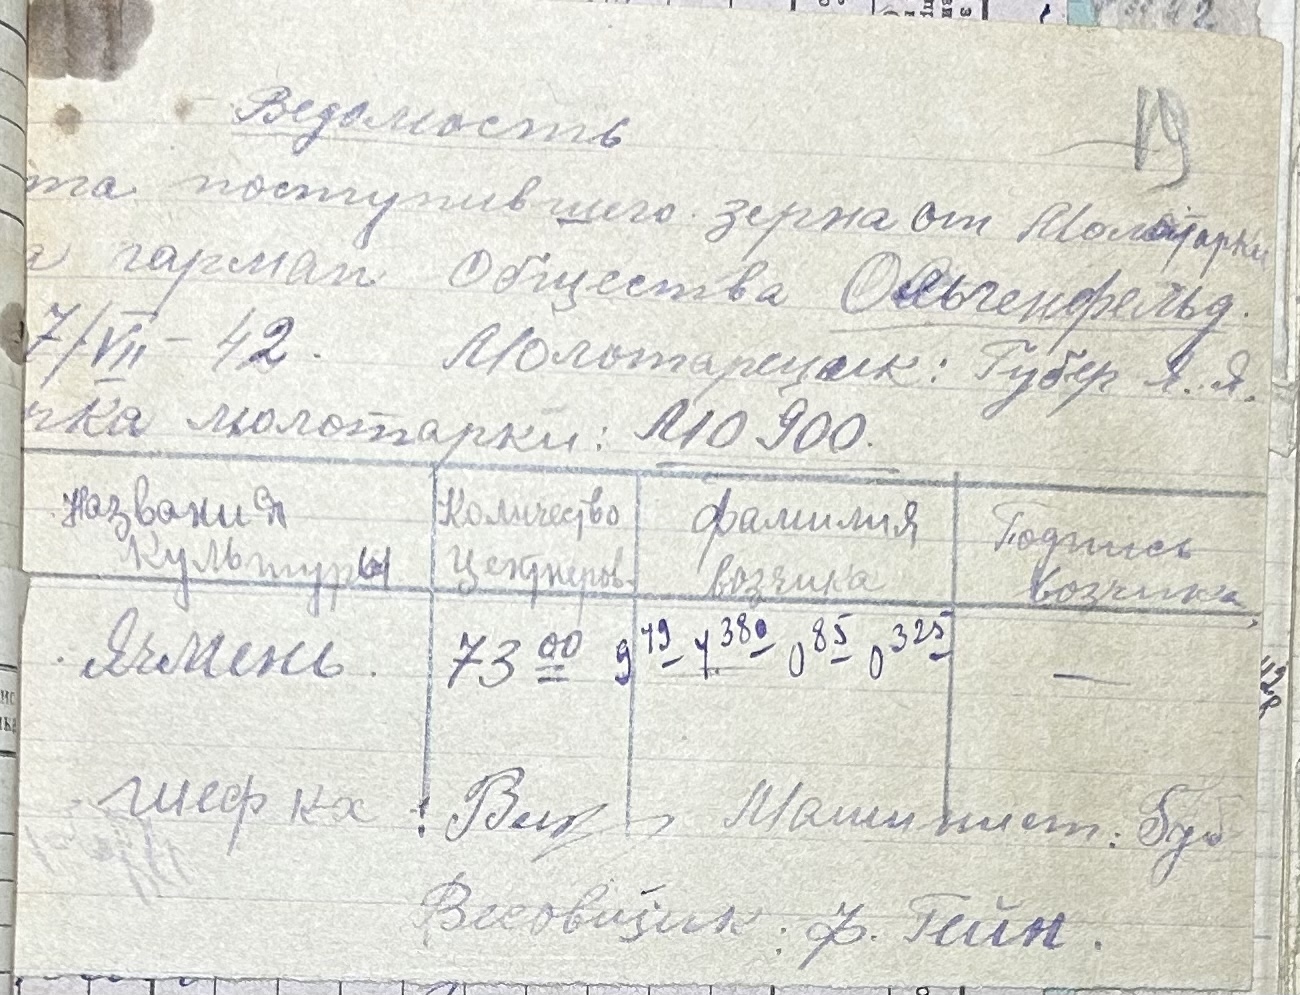 19
Ведомость
та поступившего зерна от Молотарки
а гарман Общества Ольгенфельд.
7/VII – 42. Молотарещик: Губер Я. Я.
чка молотарки: МО 900.
Названия культуры
Количество центнеров.
фамилия возчика
Подпись возчика
Ячмень. 73 00 9 79 1 380 0 85 0 325 —
шеф кх : Машинист: Губ
Весовщик: Ф. Гейн.